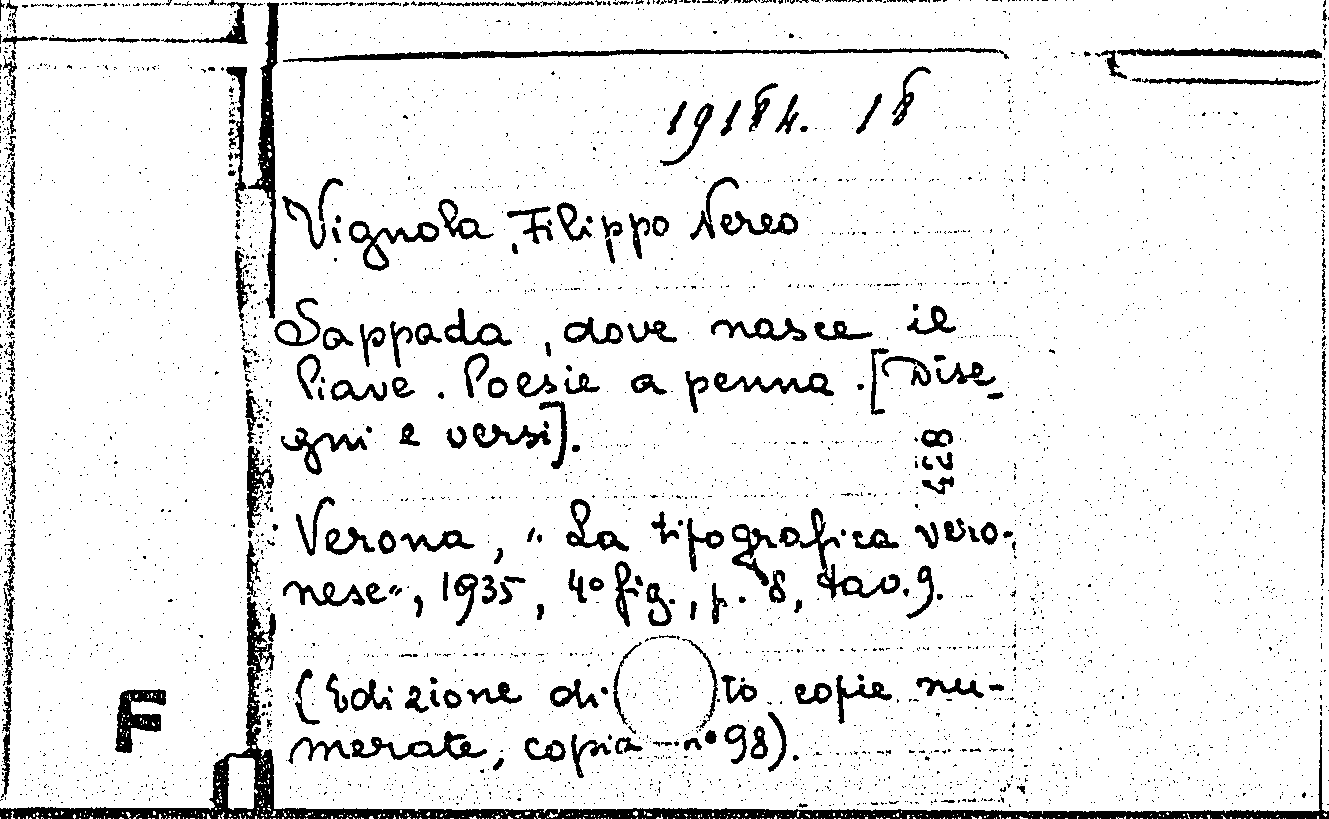 19184. 18
Vignola, Filippo Nereo
Sappada, dove nasce il
Piave. Poesie a penna. [Dise-
gni e versi].
Verona, "La tipografica vero-
nese", 1935, 4º fig., p. 8, tav. 9.
(Edizione di to copie nu-
merate, copia nº 98).
F